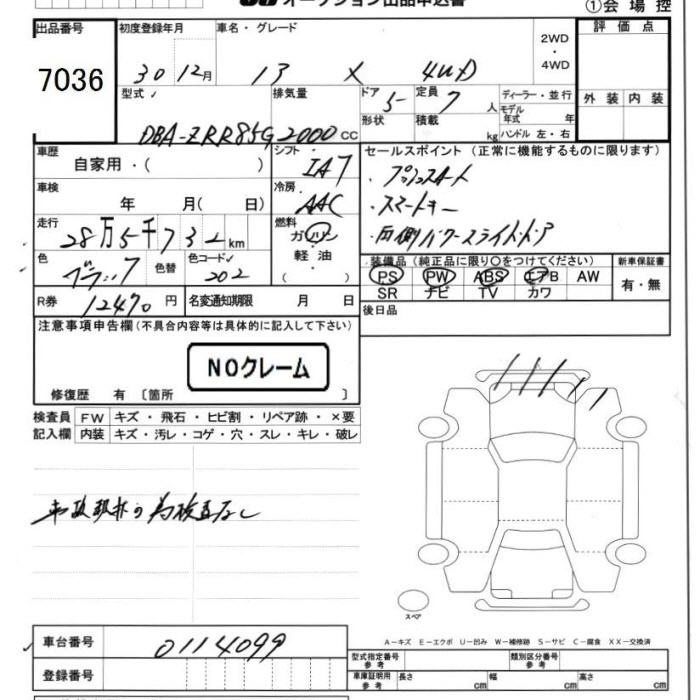 オークション出品申込書
①会場控
出品番号 初度登録年月 車名・グレード 2WD ・ 4WD 評価点
7036 30 12月 13 X 4WD
型式 排気量 ドア 5 定員 7人 ディーラー・並行 外装 内装
形状 積載 kg モデル年式 年
DBA-ZRR85G 2000cc ハンドル 左・右
車歴 自家用・( ) シフト IA7 セールスポイント (正常に機能するものに限ります)
・プッシュスタート
車検 年 月( 日) 冷房 AAC ・スマートキー
走行 28万5千732km 燃料 ガソリン ・両側パワースライドドア
軽油
( )
色 ブラック 色替 色コード 202 装備品(純正品に限り○をつけてください) 新車保証書
PS PW ABS エアB AW 有・無
SR ナビ TV カワ
R券 12470円 名変通知期限 月 日 後日品
注意事項申告欄(不具合内容等は具体的に記入して下さい)
NOクレーム
修復歴 有 〔箇所 〕
検査員 FW キズ・飛石・ヒビ割・リペア跡・×要
記入欄 内装 キズ・汚レ・コゲ・穴・スレ・キレ・破レ
の為検査なし
スペア
A-キズ E-エクボ U-凹み W-補修跡 S-サビ C-腐食 XX-交換済
車台番号 0114099 型式指定番号 参考 類別区分番号 参考
登録番号 車庫証明用 参考 長さ cm 幅 cm 高さ cm